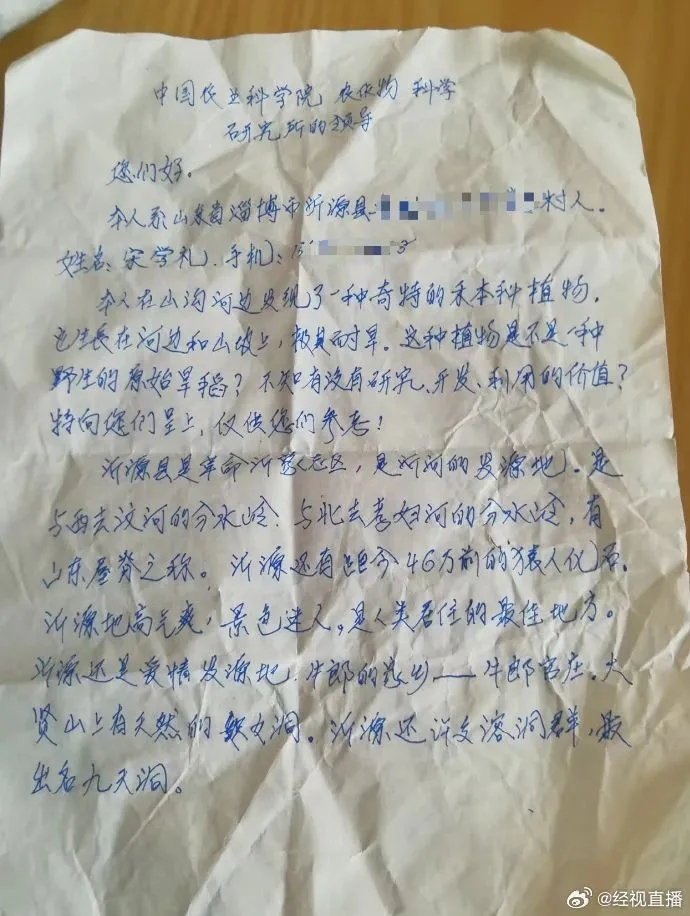 中国农业科学院 农作物 科学
研究所的领导
您们好。
本人系山东省淄博市沂源县 村人。
姓名:宋学礼.手机:15 3
本人在山沟河边发现了一种奇特的禾本种植物.
它生长在河边和山坡上,极其耐旱。这种植物是不是一种
野生的原始旱稻?不知有没有研究、开发、利用的价值?
特向您们呈上,仅供您们参考!
沂源县是革命沂蒙老区,是沂河的发源地.是
与西去汶河的分水岭.与北去孝妇河的分水岭,有
山东屋脊之称。沂源还有距今46万前的猿人化石.
沂源地高气爽,景色迷人,是人类居住的最佳地方。
沂源还是爱情发源地.牛郎的故乡——牛郎官庄。大
贤山上有天然的织女洞。沂源还许多溶洞群,最
出名九天洞。
@经视直播